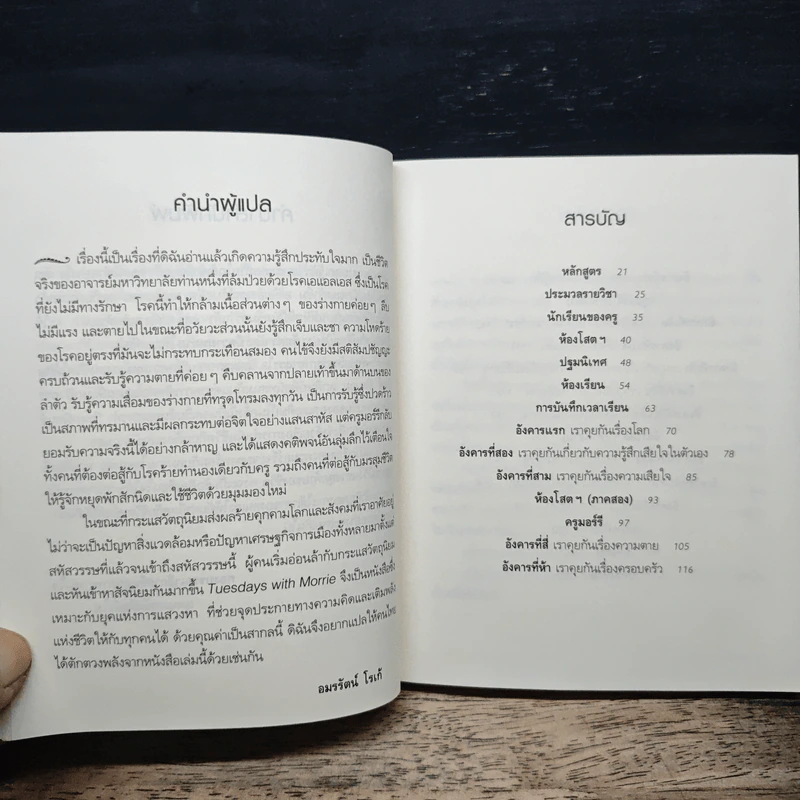 คำนำผู้แปล
เรื่องนี้เป็นเรื่องที่ดิฉันอ่านแล้วเกิดความรู้สึกประทับใจมาก เป็นชีวิต
จริงของอาจารย์มหาวิทยาลัยท่านหนึ่งที่ล้มป่วยด้วยโรคเอแอลเอส ซึ่งเป็นโรค
ที่ยังไม่มีทางรักษา โรคนี้ทำให้กล้ามเนื้อส่วนต่างๆ ของร่างกายค่อยๆ ลีบ
ไม่มีแรง และตายไปในขณะที่อวัยวะส่วนนั้นยังรู้สึกเจ็บและชา ความโหดร้าย
ของโรคอยู่ตรงที่มันจะไม่กระทบกระเทือนสมอง คนไข้จึงยังมีสติสัมปชัญญะ
ครบถ้วนและรับรู้ความตายที่ค่อยๆ คืบคลานจากปลายเท้าขึ้นมาด้านบนของ
ลำตัว รับรู้ความเสื่อมของร่างกายที่ทรุดโทรมลงทุกวัน เป็นการรับรู้ซึ่งปวดร้าว
เป็นสภาพที่ทรมานและมีผลกระทบต่อจิตใจอย่างแสนสาหัส แต่ครูมอร์รีกลับ
ยอมรับความจริงนี้ได้อย่างกล้าหาญ และได้แสดงคติพจน์อันลุ่มลึกไว้เตือนใจ
ทั้งคนที่ต้องต่อสู้กับโรคร้ายทำนองเดียวกับครู รวมถึงคนที่ต่อสู้กับมรสุมชีวิต
ให้รู้จักหยุดพักสักนิดและใช้ชีวิตด้วยมุมมองใหม่
ในขณะที่กระแสวัตถุนิยมส่งผลร้ายคุกคามโลกและสังคมที่เราอาศัยอยู่
ไม่ว่าจะเป็นปัญหาสิ่งแวดล้อมหรือปัญหาเศรษฐกิจการเมืองทั้งหลายมาตั้งแต่
สหัสวรรษที่แล้วจนเข้าถึงสหัสวรรษนี้ ผู้คนเริ่มอ่อนล้ากับกระแสวัตถุนิยม
และหันเข้าหาสัจนิยมกันมากขึ้น Tuesdays with Morrie จึงเป็นหนังสือซึ่ง
เหมาะกับยุคแห่งการแสวงหา ที่ช่วยจุดประกายทางความคิดและเติมพลัง
แห่งชีวิตให้กับทุกคนได้ ด้วยคุณค่าเป็นสากลนี้ ดิฉันจึงอยากแปลให้คนไทย
ได้ตักตวงพลังจากหนังสือเล่มนี้ด้วยเช่นกัน
อมรรัตน์ โรเก้
สารบัญ
หลักสูตร 21
ประมวลรายวิชา 25
นักเรียนของครู 35
ห้องโสตฯ 40
ปฐมนิเทศ 48
ห้องเรียน 54
การบันทึกเวลาเรียน 63
อังคารแรก เราคุยกันเรื่องโลก 70
อังคารที่สอง เราคุยกันเกี่ยวกับความรู้สึกเสียใจในตัวเอง 78
อังคารที่สาม เราคุยกันเรื่องความเสียใจ 85
ห้องโสตฯ (ภาคสอง) 93
ครูมอร์รี 97
อังคารที่สี่ เราคุยกันเรื่องความตาย 105
อังคารที่ห้า เราคุยกันเรื่องครอบครัว 116